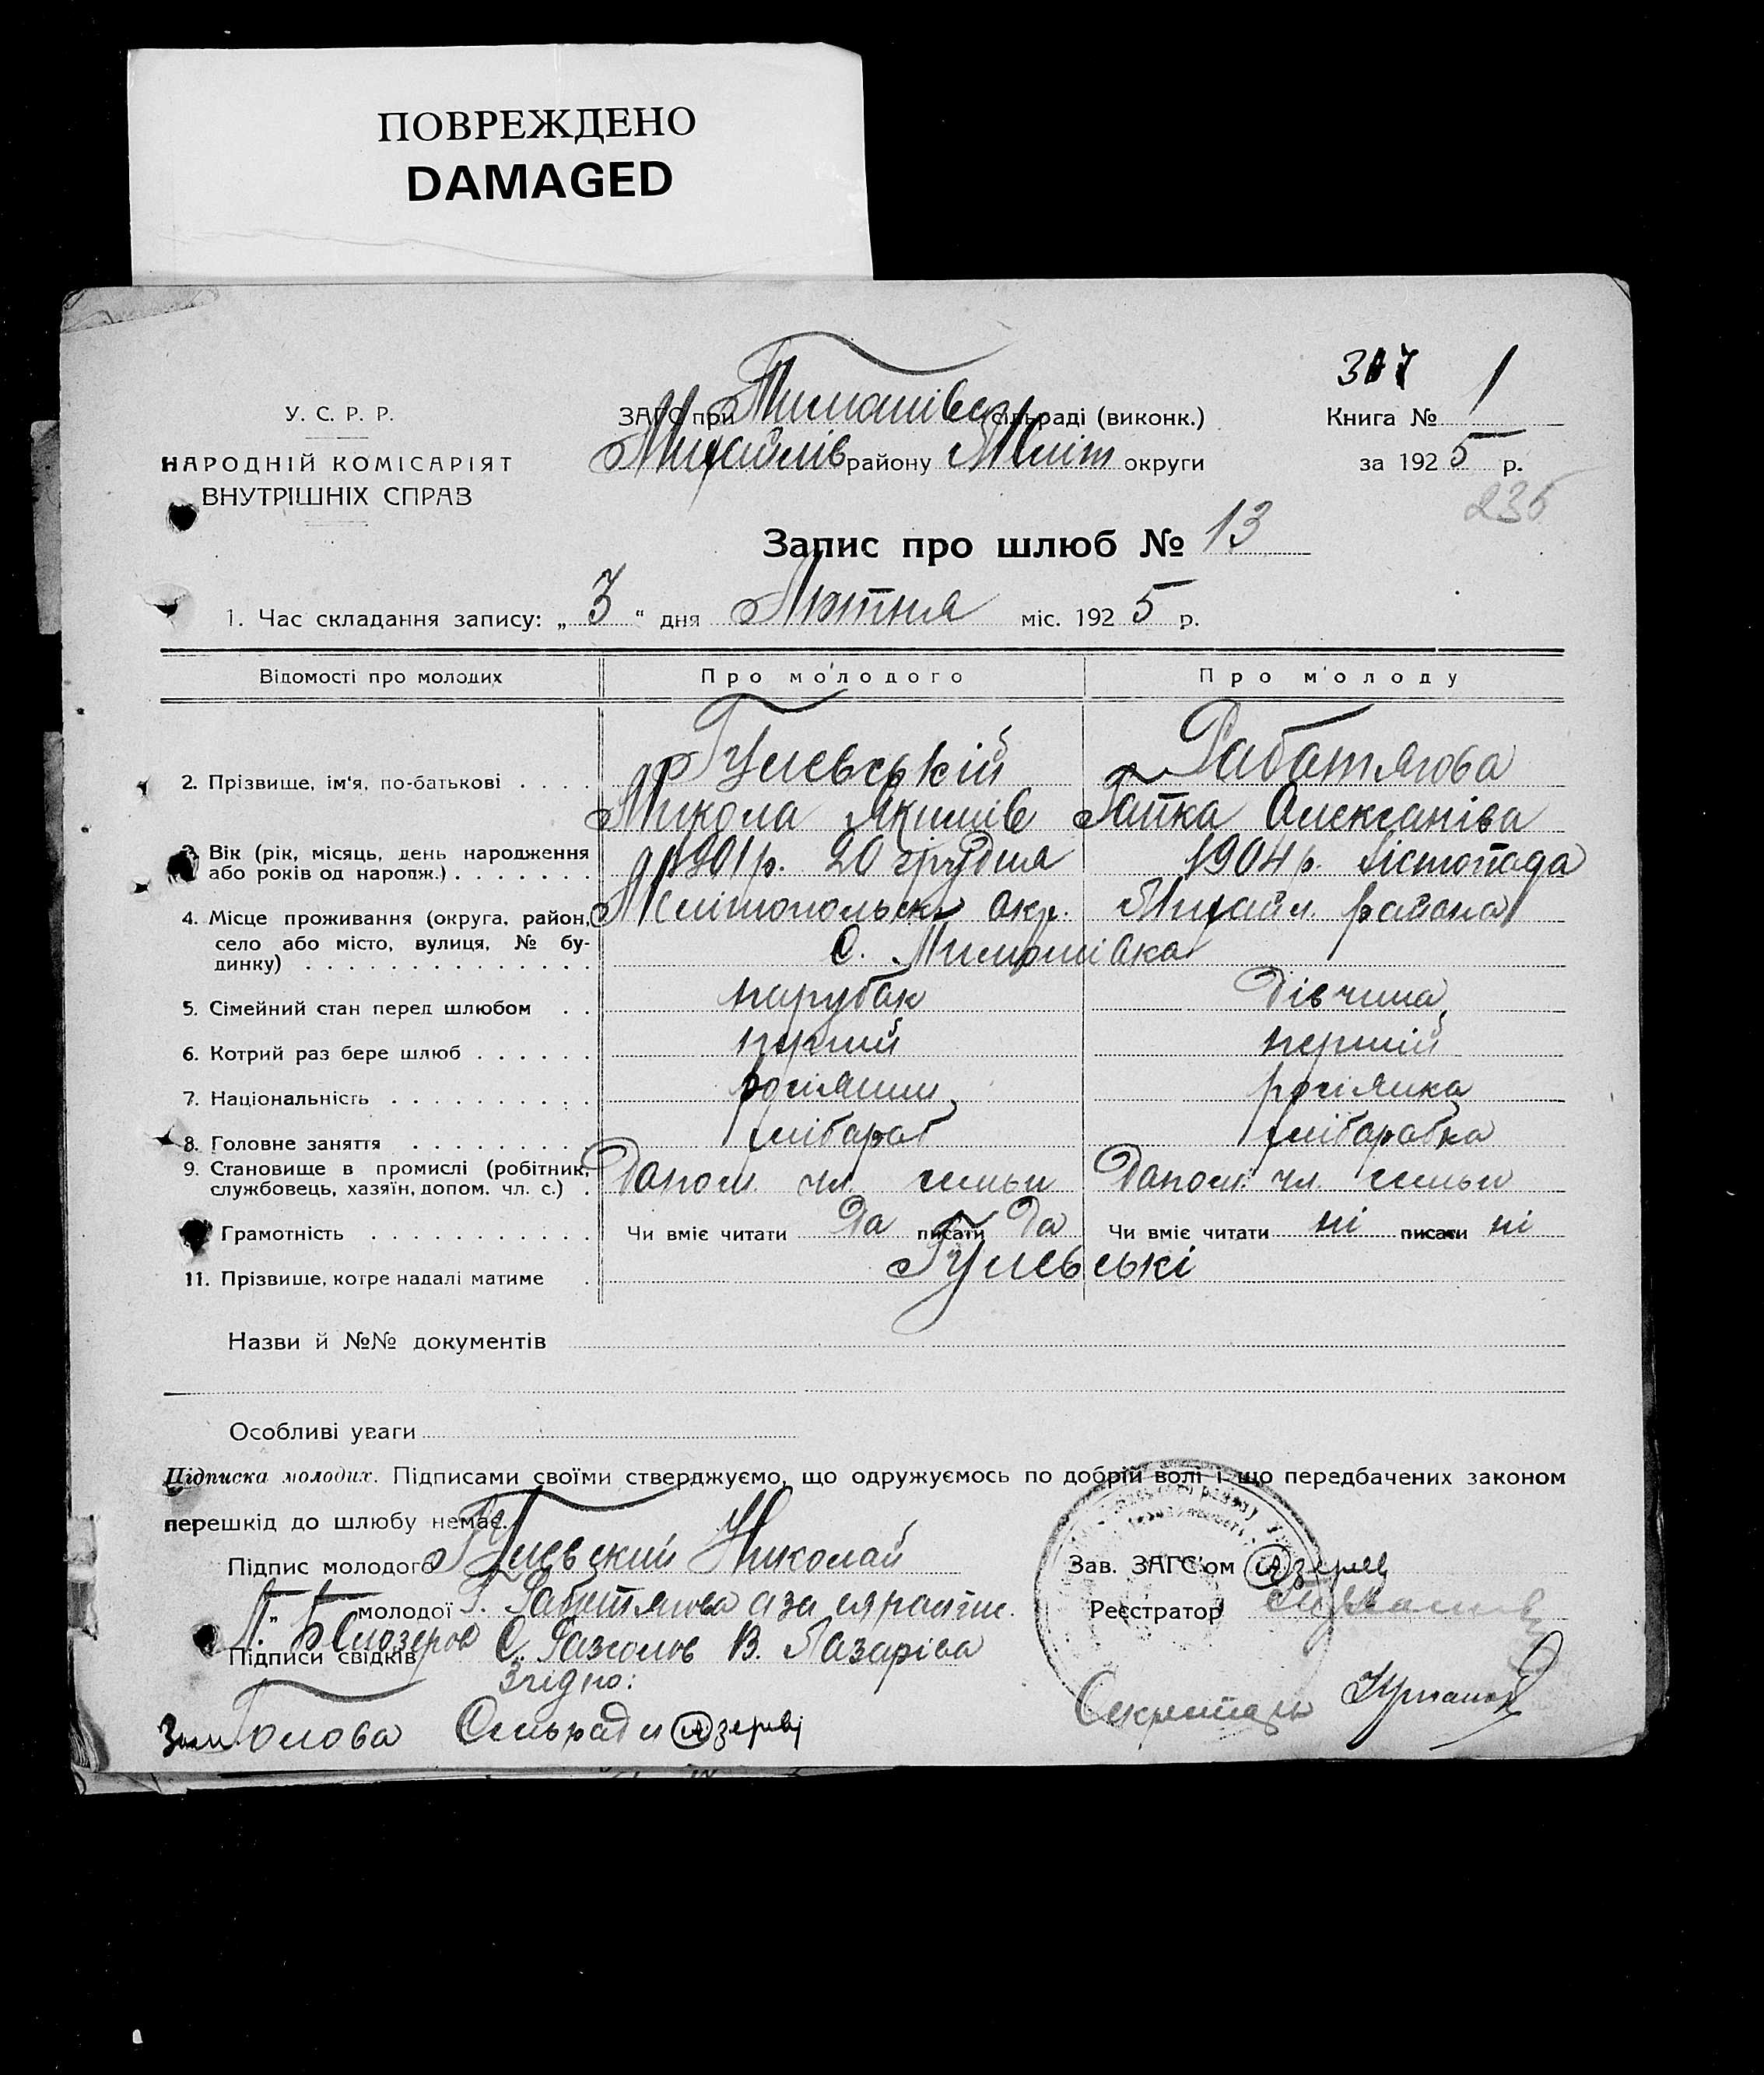 ПОВРЕЖДЕНО
DAMAGED
317
У. С. Р. Р.
НАРОДНІЙ КОМІСАРІЯТ
ВНУТРІШНІХ СПРАВ
ЗАГС при Тимошівск сільраді (виконк.)
Михайлів району Меліт округи
Книга № 1
за 1925 р.
235
Запис про шлюб № 13
1. Час складання запису: „ 3 “ дня Лютня міс. 1925 р.
Відомості про молодих Про молодого Про молоду
2. Прізвище, ім'я, по-батькові Гулєвський Рабатягова
Микола Якимів Гапка Олексаніва
3. Вік (рік, місяць, день народження або років од народж.) 1901 р. 20 грудня 1904 р. Лістопада
4. Місце проживання (округа, район, село або місто, вулиця, № будинку) Мелітопольск окр. Михайл. района
С. Тимошівка
5. Сімейний стан перед шлюбом парубак дівчина
6. Котрий раз бере шлюб перший перший
7. Національність росіянин росіянка
8. Головне заняття хлібароб хлібаробка
9. Становище в промислі (робітник, службовець, хазяїн, допом. чл. с.) Допом. чл. семьи Допом. чл. семьи
Грамотність Чи вміє читати Да писати Да Чи вміє читати ні писати ні
11. Прізвище, котре надалі матиме Гулєвські
Назви й №№ документів
Особливі уваги
Підписка молодих. Підписами своїми стверджуємо, що одружуємось по добрій волі і що передбачених законом
перешкід до шлюбу немає.
Підпис молодого Гулєвский Николай
Зав. ЗАГС'ом
„ молодої Г. Рабатягова а за
Реєстратор
Підписи свідків В. Лазаріва
Згідно:
Зам. Голова Сельради
Секретарь